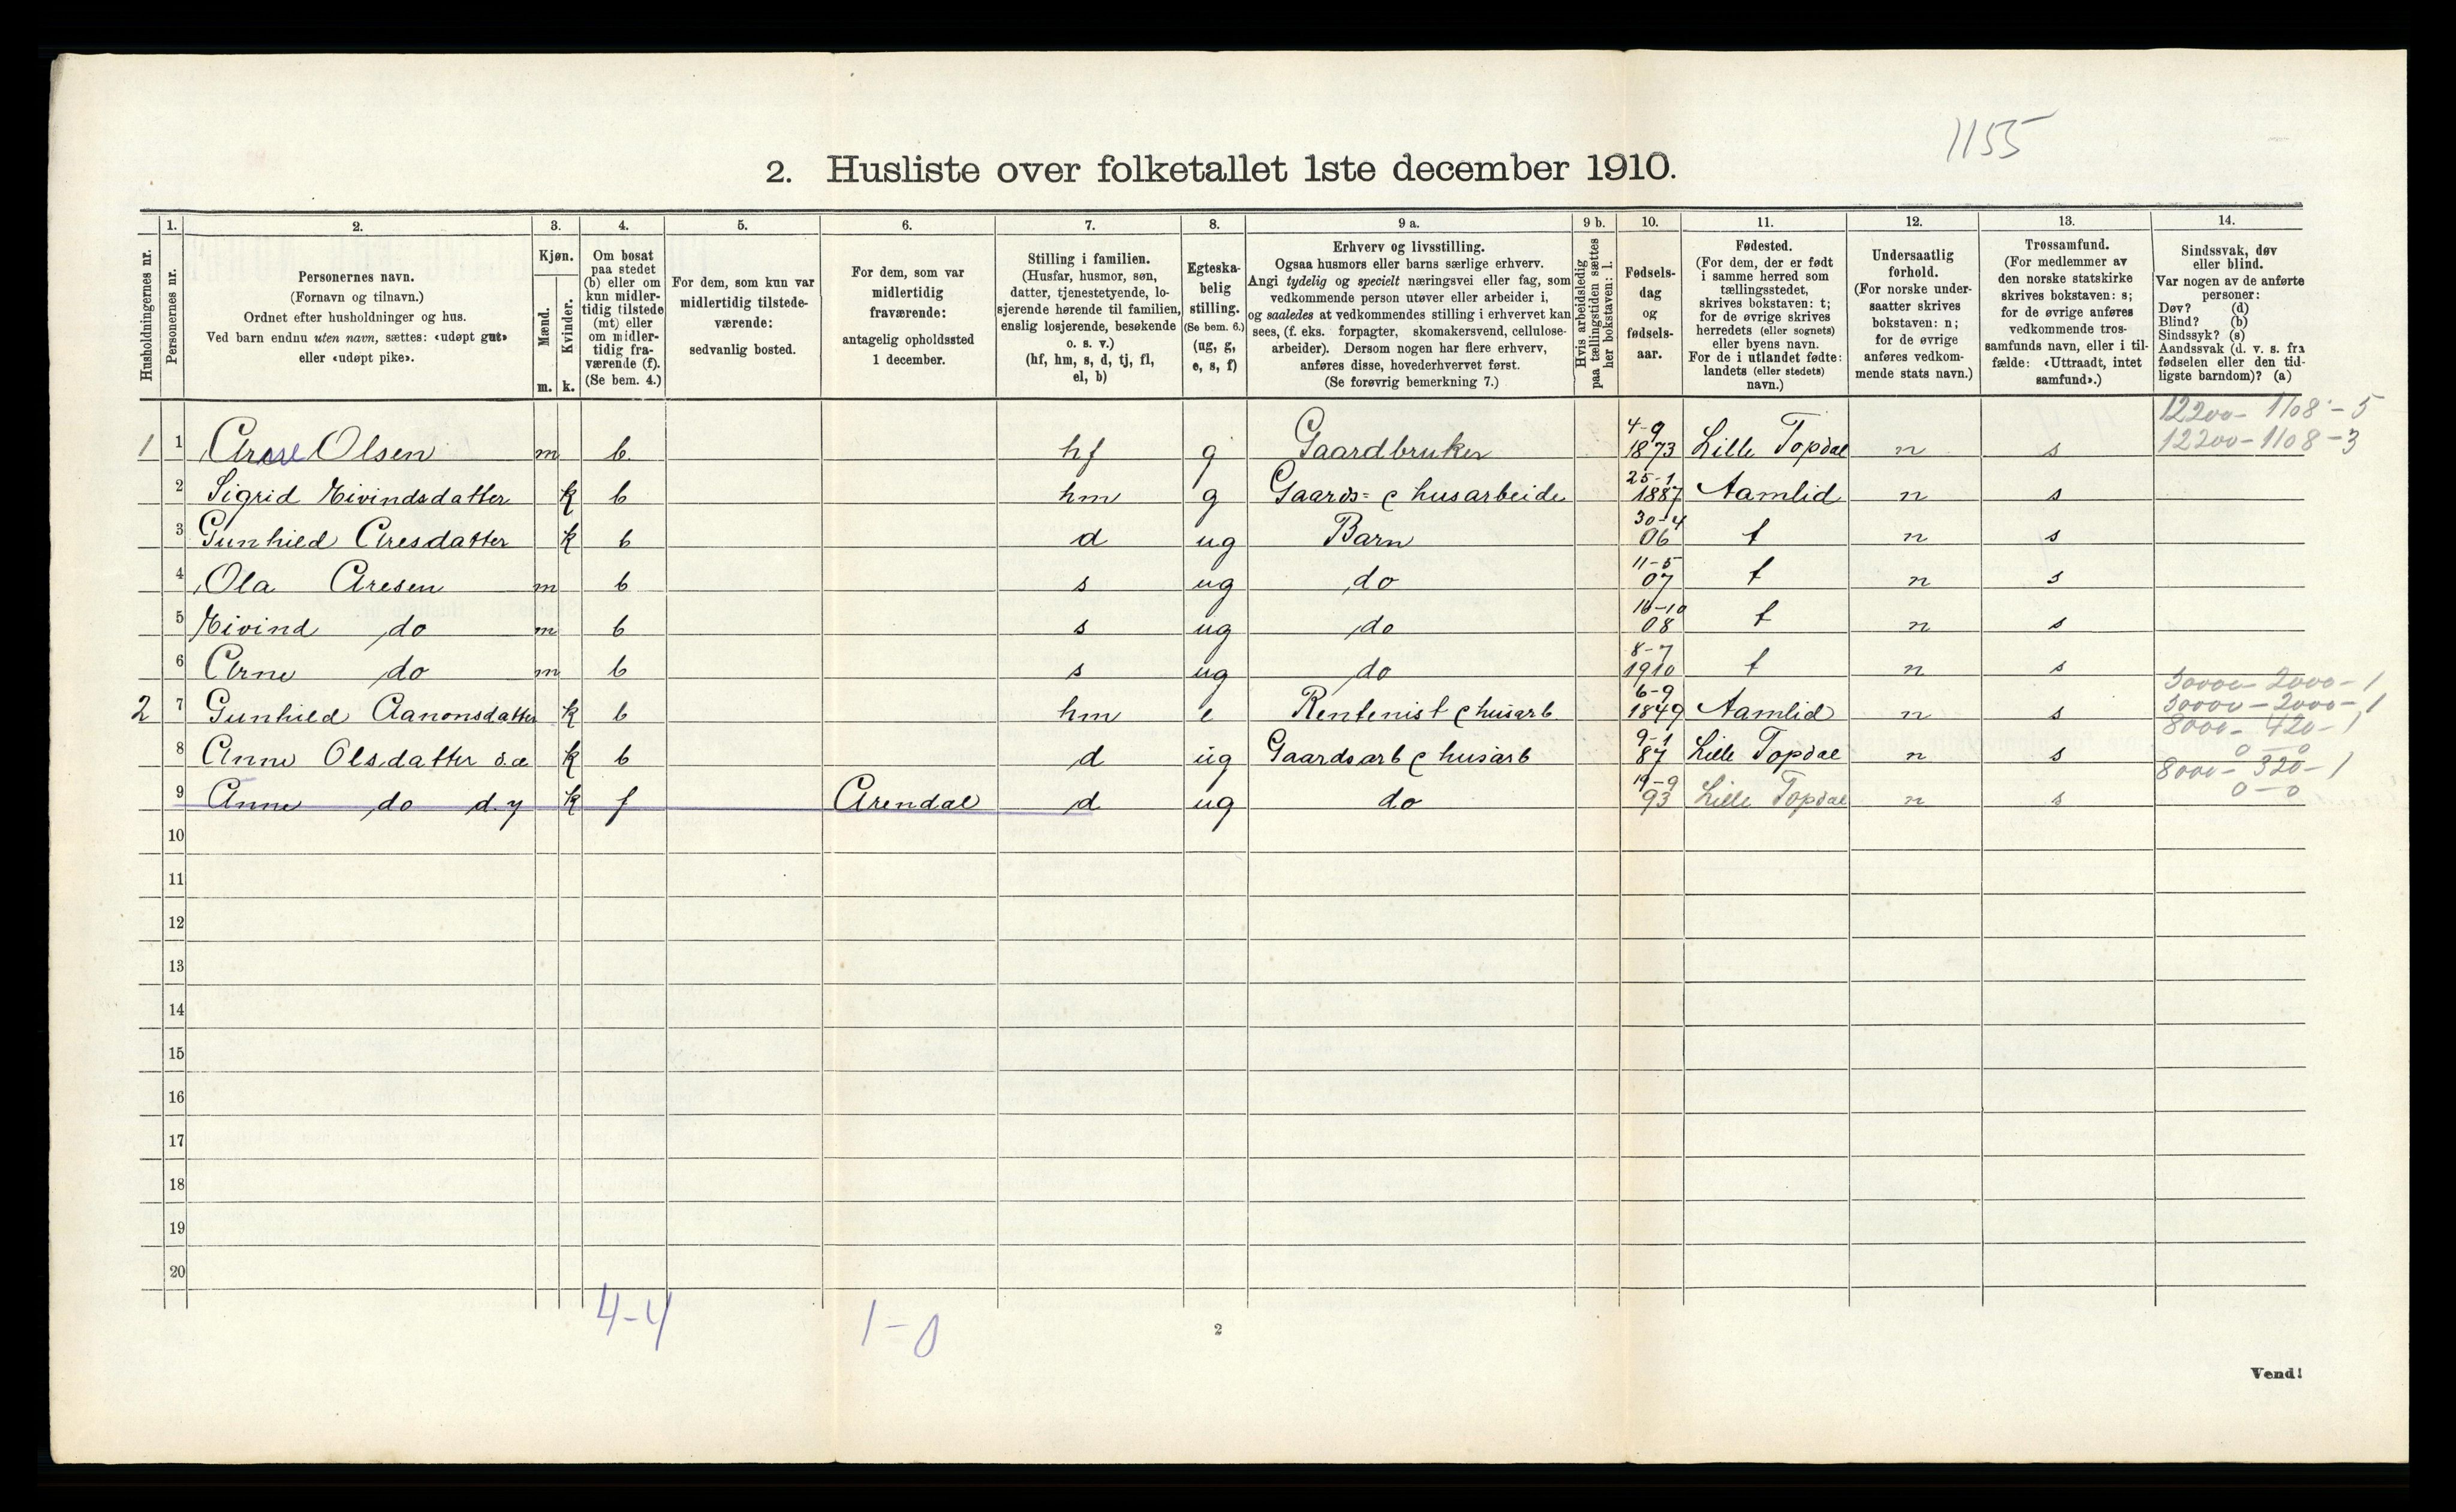 1155
2. Husliste over folketallet 1ste december 1910.
Husholdningernes nr.
1.
Personernes nr.
2.
Personernes navn.
(Fornavn og tilnavn.)
Ordnet efter husholdninger og hus.
Ved barn endnu uten navn, sættes: «udøpt gut»
eller «udøpt pike».
3.
Kjøn.
Mænd.
Kvinder.
m. k.
4.
Om bosat
paa stedet
(b) eller om
kun midler-
tidig tilstede
(mt) eller
om midler-
tidig fra-
værende (f).
(Se bem. 4.)
5.
For dem, som kun var
midlertidig tilstede-
værende:
sedvanlig bosted.
6.
For dem, som var
midlertidig
fraværende:
antagelig opholdssted
1 december.
7.
Stilling i familien.
(Husfar, husmor, søn,
datter, tjenestetyende, lo-
sjerende hørende til familien,
enslig losjerende, besøkende
o. s. v.)
(hf, hm, s, d, tj, fl,
el, b)
8.
Egteska-
belig
stilling.
(Se bem. 6.)
(ug, g,
e, s, f)
9 a.
Erhverv og livsstilling.
Ogsaa husmors eller barns særlige erhverv.
Angi tydelig og specielt næringsvei eller fag, som
vedkommende person utøver eller arbeider i,
og saaledes at vedkommendes stilling i erhvervet kan
sees, (f. eks. forpagter, skomakersvend, cellulose-
arbeider). Dersom nogen har flere erhverv,
anføres disse, hovederhvervet først.
(Se forøvrig bemerkning 7.)
9 b.
Hvis arbeidsledig
paa tællingstiden sættes
her bokstaven: l.
10.
Fødsels-
dag
og
fødsels-
aar.
11.
Fødested.
(For dem, der er født
i samme herred som
tællingsstedet,
skrives bokstaven: t;
for de øvrige skrives
herredets (eller sognets)
eller byens navn.
For de i utlandet fødte:
landets (eller stedets)
navn.)
12.
Undersaatlig
forhold.
(For norske under-
saatter skrives
bokstaven: n;
for de øvrige
anføres vedkom-
mende stats navn.)
13.
Trossamfund.
(For medlemmer av
den norske statskirke
skrives bokstaven: s;
for de øvrige anføres
vedkommende tros-
samfunds navn, eller i til-
fælde: «Uttraadt, intet
samfund».)
14.
Sindssvak, døv
eller blind.
Var nogen av de anførte
personer:
Døv? (d)
Blind? (b)
Sindssyk? (s)
Aandssvak (d. v. s. fra
fødselen eller den tid-
ligste barndom)? (a)
12200 - 1108 - 5
12200 - 1108 - 3
1 1 Olsen m b hf g Gaardbruker 4-9 1873 Lille Topdal n s
2 Sigrid Eivindsdatter k b hm g Gaards= & husarbeide 25-1 1887 Aamlid n s
3 Gunhild Aresdatter k b d ug Barn 30-4 06 t n s
4 Ola Aresen m b s ug do 11-5 07 t n s
5 Eivind do m b s ug do 16-10 08 t n s
6 Arne do m b s ug do 8-7 1910 t n s
30000 - 2000 - 1
2 7 Gunhild Aanonsdatter k b hm e Rentenist & husarb. 6-9 1849 Aamlid n s 30000 - 2000 - 1
8000 - 420 - 1
8 Anne Olsdatter d.æ k b d ug Gaardsarb & husarb 9-1 87 Lille Topdal n s 0 - 0
8000 - 320 - 1
9 Anne do d.y k f Arendal d ug do 19-9 93 Lille Topdal n s 0 - 0
10
11
12
13
14
15
16
17
18
19
20
4-4 1-0
2
Vend!